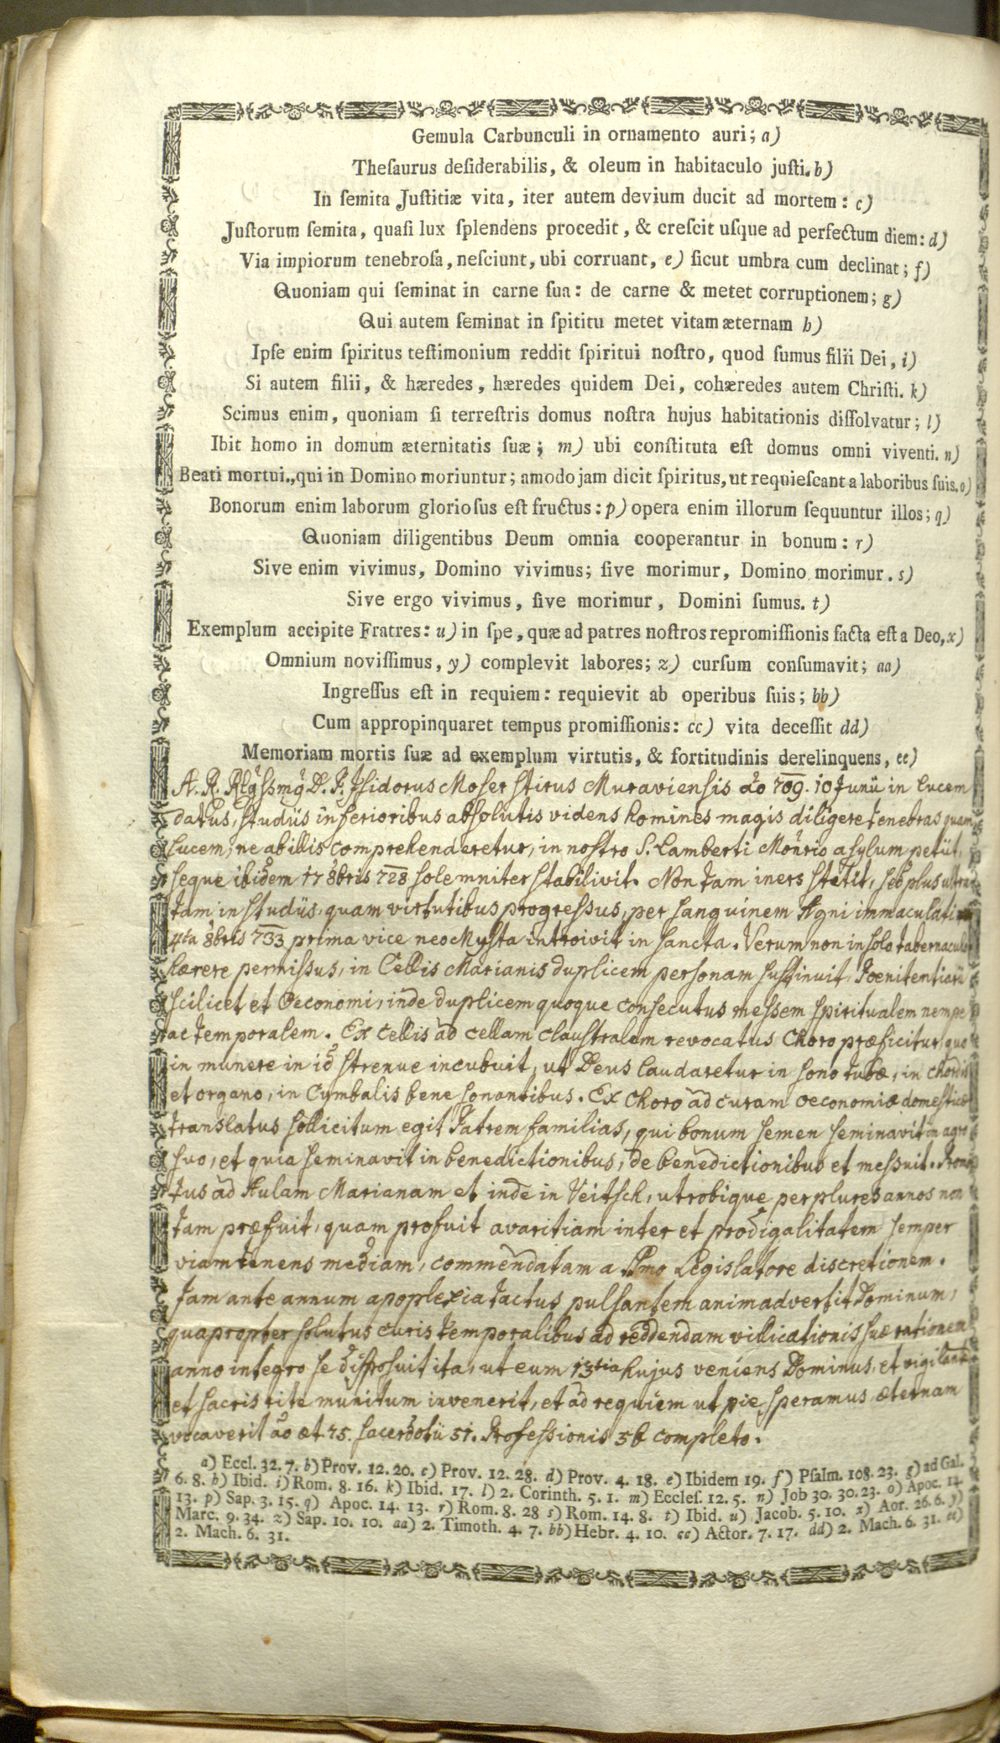 Gemula Carbunculi in ornamento auri; a)
Theſaurus deſiderabilis, & oleum in habitaculo juſti. b)
In ſemita Juſtitiæ vita, iter autem devium ducit ad mortem: c)
Juſtorum ſemita, quaſi lux ſplendens procedit, & creſcit uſque ad perfectum diem: d)
Via impiorum tenebroſa, neſciunt, ubi corruant, e) ſicut umbra cum declinat; f)
Quoniam qui ſeminat in carne ſua: de carne & metet corruptionem; g)
Qui autem ſeminat in ſpititu metet vitam æternam h)
Ipſe enim ſpiritus teſtimonium reddit ſpiritui noſtro, quod ſumus filii Dei, i)
Si autem filii, & hæredes, hæredes quidem Dei, cohæredes autem Chriſti. k)
Scimus enim, quoniam ſi terreſtris domus noſtra hujus habitationis diſſolvatur; l)
Ibit homo in domum æternitatis ſuæ; m) ubi conſtituta eſt domus omni viventi. n)
Beati mortui., qui in Domino moriuntur; amodo jam dicit ſpiritus, ut requieſcant a laboribus ſuis. o)
Bonorum enim laborum glorioſus eſt fructus: p) opera enim illorum ſequuntur illos; q)
Quoniam diligentibus Deum omnia cooperantur in bonum: r)
Sive enim vivimus, Domino vivimus; ſive morimur, Domino morimur. s)
Sive ergo vivimus, ſive morimur, Domini ſumus. t)
Exemplum accipite Fratres: u) in ſpe, quæ ad patres noſtros repromiſſionis facta eſt a Deo, x)
Omnium noviſſimus, y) complevit labores; z) curſum conſumavit; aa)
Ingreſſus eſt in requiem: requievit ab operibus ſuis; bb)
Cum appropinquaret tempus promiſſionis: cc) vita deceſſit dd)
Memoriam mortis ſuæ ad exemplum virtutis, & fortitudinis derelinquens, ee)
A. R. Rlgſsmg D. P. Iſidorus Moser Stirus Muraviensis ao 709. 10 Junii in lucem
datus, studiis inferioribus absolutis videns homines magis diligere tenebras quam
lucem, ne ab illis comprehenderetur, in nostro S. Lamberti Monrio asylum petiit,
seque ibidem 17 8bris 728 solemniter stabilivit. Non tam iners stetit, sed plus ultra
tam in studiis, quam virtutibus progressus, per sanguinem Agni immaculati
4ta 8bris 733 prima vice neoMysta introivit in sancta. Verum non in solo tabernaculo
hærere permissus, in Cellis Marianis duplicem personam sustinuit, Pœnitentiarii
scilicet et Oeconomi, inde duplicem quoque consecutus messem spiritualem nempe
ac temporalem. Ex Cellis ad cellam claustralem revocatus Choro præficitur, quo
in munere in id strenue incubuit, ut Deus laudaretur in sono tubæ, in chordis
et organo, in Cymbalis bene sonantibus. Ex Choro ad curam oeconomiæ domesticæ
translatus sollicitum egit Patrem familias, qui bonum semen seminavit in agro
suo, et quia seminavit in benedictionibus, de benedictionibus et messuit. Promo
tus ad Aulam Marianam et inde in Veitsch, utrobique per plures annos non
tam præfuit, quam profuit avaritiam inter et prodigalitatem semper
viam tenens mediam, commendatam a Legislatore discretionem.
Jam ante annum apoplexia tactus pulsantem animadvertit Dominum,
quapropter solutus curis temporalibus ad reddendam villicationis suæ rationem
anno integro se disposuit ita, ut eum 13tia hujus veniens Dominus, et vigilantem
et sacris rite munitum invenerit, et ad requiem ut pie speramus æternam
vocaverit ao æt. 75. sacerdotii 51. Professionis 56 completo.
a) Eccl. 32. 7. b) Prov. 12. 20. c) Prov. 12. 28. d) Prov. 4. 18. e) Ibidem 19. f) Pſalm. 108. 23. g) ad Gal.
6. 8. h) Ibid. i) Rom. 8. 16. k) Ibid. 17. l) 2. Corinth. 5. 1. m) Eccleſ. 12. 5. n) Job 30. 30. 23. o) Apoc. 14.
13. p) Sap. 3. 15. q) Apoc. 14. 13. r) Rom. 8. 28 s) Rom. 14. 8. t) Ibid. u) Jacob. 5. 10. x) Aor. 26. 6. y)
Marc. 9. 34. z) Sap. 10. 10. aa) 2. Timoth. 4. 7. bb) Hebr. 4. 10. cc) Actor. 7. 17. dd) 2. Mach. 6. 31. ee)
2. Mach. 6. 31.